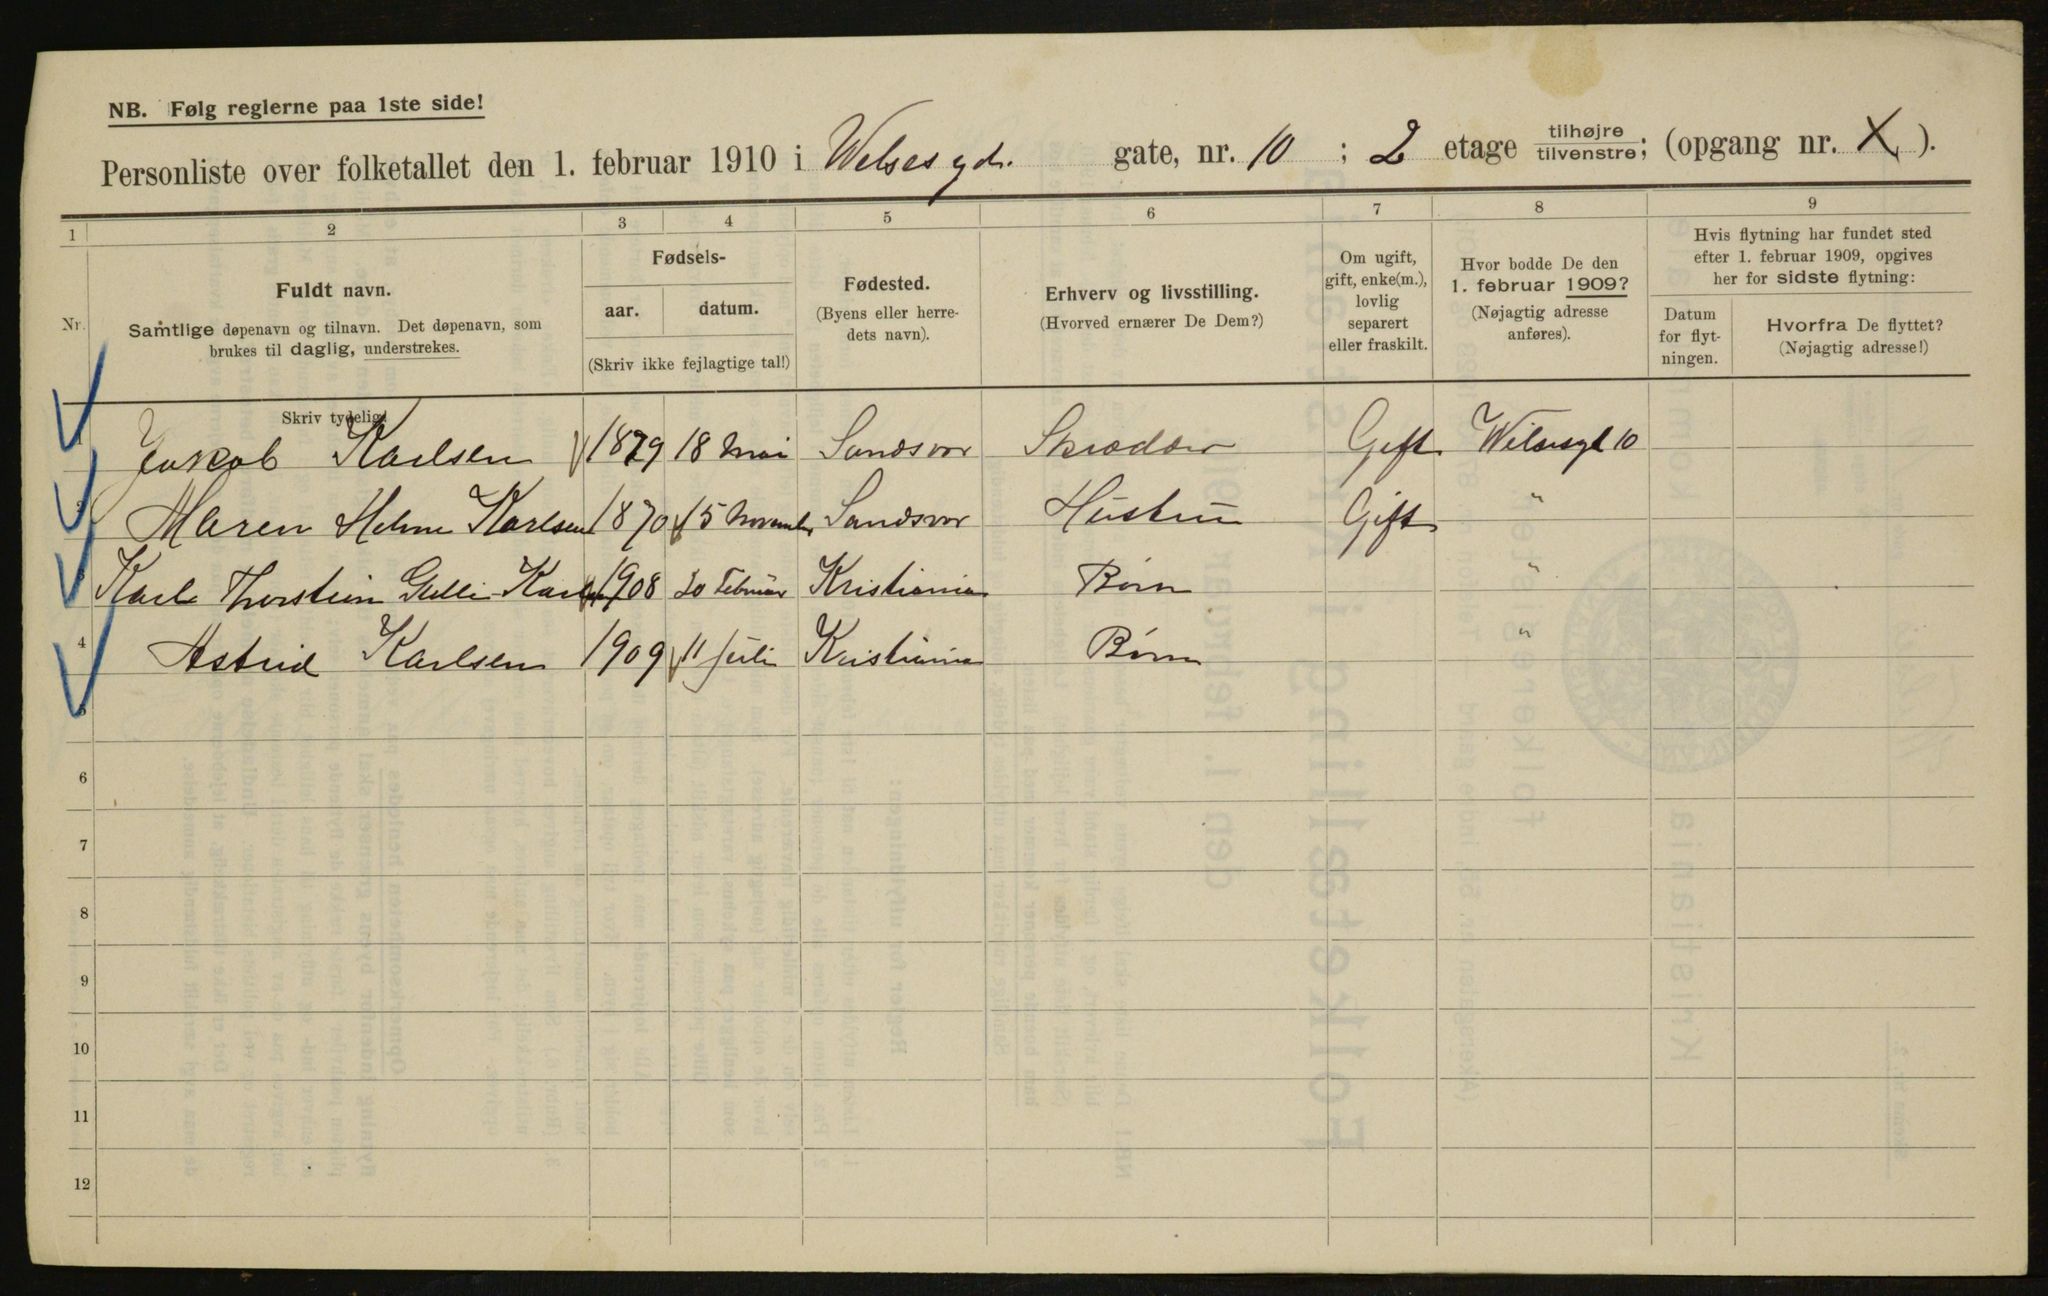 NB. Følg reglerne paa 1ste side!
Personliste over folketallet den 1. februar 1910 i Welsesgd. gate, nr. 10 ; 2 etage tilhøjre tilvenstre; (opgang nr. X ).
1 2 3 4 5 6 7 8 9
Nr.
Fuldt navn.
Samtlige døpenavn og tilnavn. Det døpenavn, som
brukes til daglig, understrekes.
Fødsels-
aar. datum.
(Skriv ikke fejlagtige tal!)
Fødested.
(Byens eller herre-
dets navn).
Erhverv og livsstilling.
(Hvorved ernærer De Dem?)
Om ugift,
gift, enke(m.),
lovlig
separert
eller fraskilt.
Hvor bodde De den
1. februar 1909?
(Nøjagtig adresse
anføres).
Hvis flytning har fundet sted
efter 1. februar 1909, opgives
her for sidste flytning:
Datum
for flyt-
ningen.
Hvorfra De flyttet?
(Nøjagtig adresse!)
Skriv tydelig!
Jakob Karlsen 1879 18 Mai Sandsvær Skrædder Gift Welsesgd 10
2 Maren Karlsen 1870 15 November Sandsvær Hustru Gift "
3 Karl Thorstein Karlsen 1908 20 Februar Kristiania Børn "
4 Astrid Karlsen 1909 11 Juli Kristiania Børn "
5
6
7
8
9
10
11
12